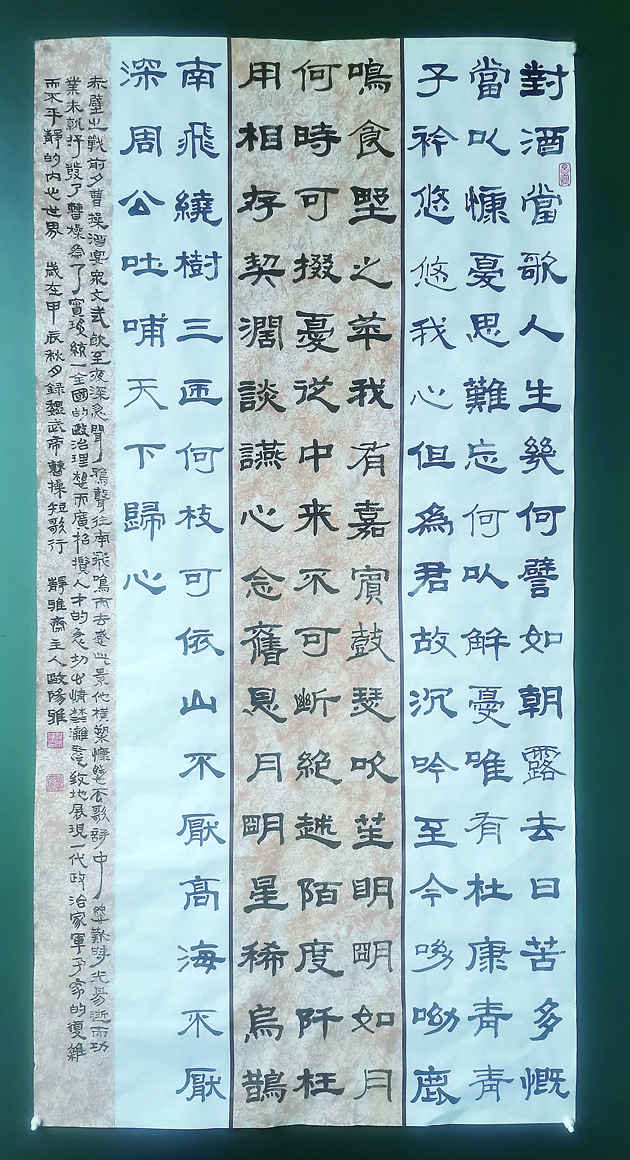 對酒當歌人生幾何譬如朝露去日苦多慨
當以慷憂思難忘何以解憂唯有杜康青青
子衿悠悠我心但為君故沉吟至今呦呦鹿
鳴食野之苹我有嘉賓鼓瑟吹笙明明如月
何時可掇憂從中来不可斷絕越陌度阡枉
用相存契濶談讌心念舊恩月明星稀烏鵲
南飛繞樹三匝何枝可依山不厭高海不厭
深周公吐哺天下歸心
赤壁之戰前夕曹操酒宴衆文武飲至夜深忽聞鴉聲往南飛鳴而去感此景他橫槊慷慨而歌詩中感歎時光易逝而功
業未就抒發了曹操為了實現統一全國的政治理想而廣招攬人才的急切心情淋灕盡致地展現一代政治家軍事家的復雜
而不平靜的内心世界 歲在甲辰秋夕録魏武帝曹操短歌行 靜雅齋主人歐陽雅